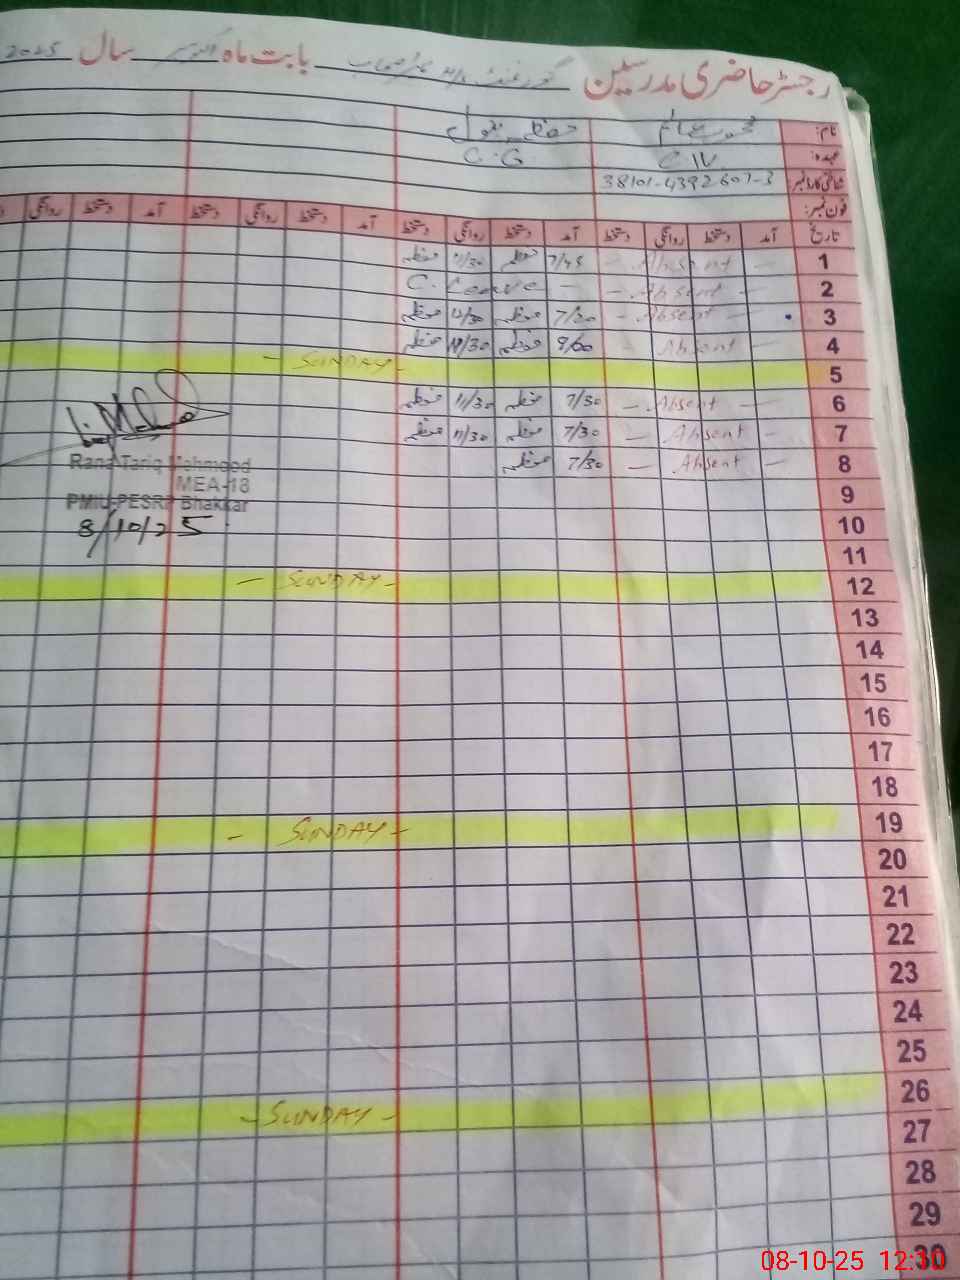 رجسٹر حاضری مدرسین گورنمنٹ بابت ماہ اکتوبر سال 2025
نام: محمد عالم حفظہ بتول
عہدہ: C-IV C.G
شناختی کارڈ نمبر: 38101-4392607-3
فون نمبر:
تاریخ آمد دستخط روانگی دستخط آمد دستخط روانگی دستخط آمد دستخط روانگی دستخط آمد دستخط روانگی
1 — Absent — 7/45 حفظہ 11/30 حفظہ
2 — Absent — — C. Leave
3 — Absent — 7/30 حفظہ 12/30 حفظہ
4 — Absent — 8/00 حفظہ 11/30 حفظہ
5 — SUNDAY —
6 — Absent — 7/30 حفظہ 11/30 حفظہ
7 — Absent — 7/30 حفظہ 11/30 حفظہ
8 — Absent — 7/30 حفظہ
Rana Tariq Mehmood
MEA-18
PMIU-PESRP Bhakkar
8/10/25
9
10
11
12 — SUNDAY —
13
14
15
16
17
18
19 — SUNDAY —
20
21
22
23
24
25
26 — SUNDAY —
27
28
29
30
08-10-25 12:30